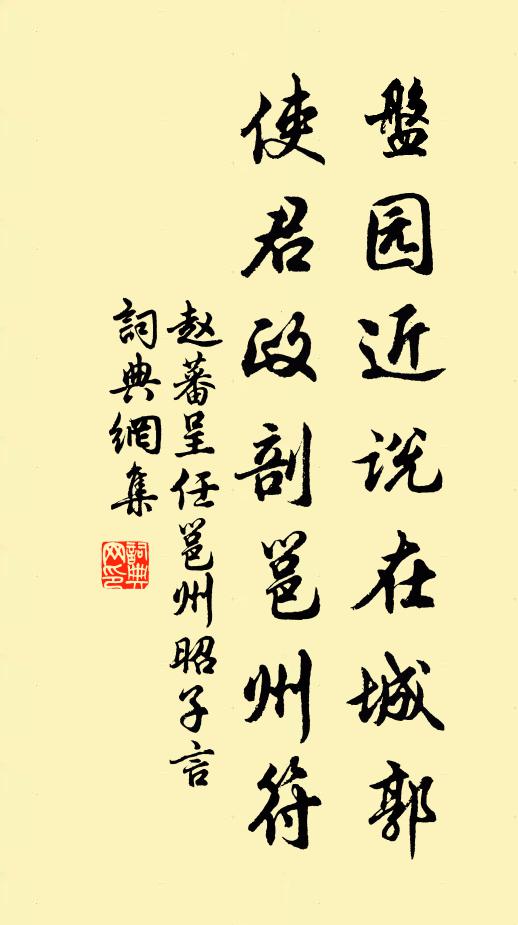 盤园近说在城郭
使君政剖邕州符
赵蕃呈任邕州昭子言
詞典網集
詞典网印